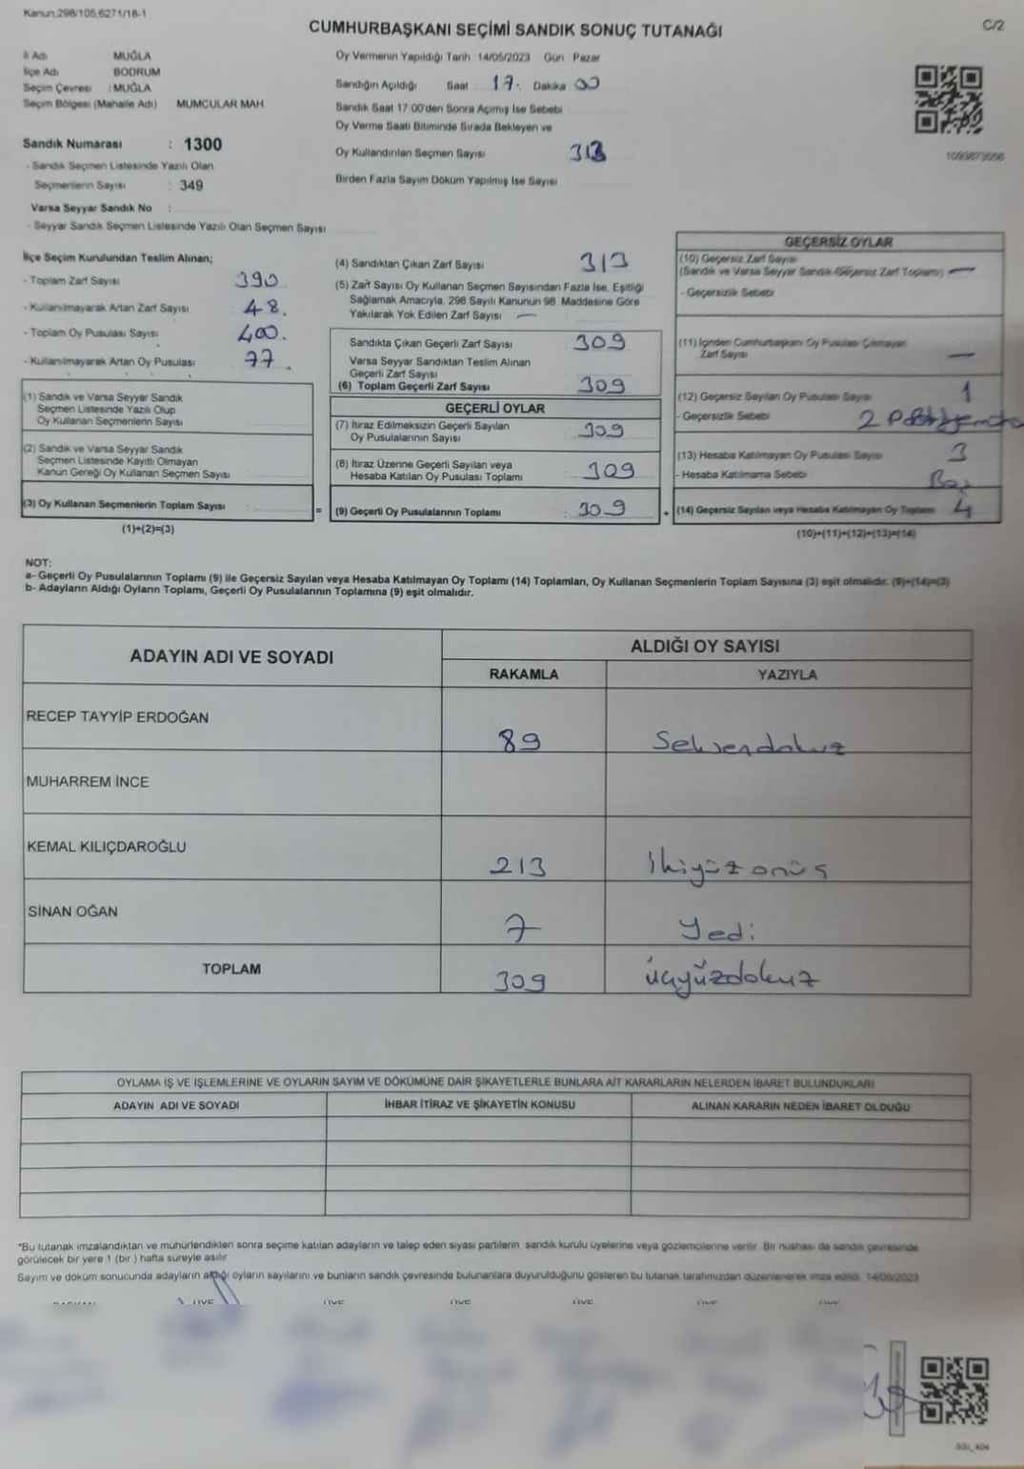 Kanun:298/105,6271/18-1
C/2
CUMHURBAŞKANI SEÇİMİ SANDIK SONUÇ TUTANAĞI
İl Adı MUĞLA
İlçe Adı BODRUM
Seçim Çevresi : MUĞLA
Seçim Bölgesi (Mahalle Adı) MUMCULAR MAH.
Sandık Numarası : 1300
- Sandık Seçmen Listesinde Yazılı Olan
Seçmenlerin Sayısı : 349
Varsa Seyyar Sandık No :
- Seyyar Sandık Seçmen Listesinde Yazılı Olan Seçmen Sayısı
Oy Vermenin Yapıldığı Tarih 14/05/2023 Gün Pazar
Sandığın Açıldığı Saat 17. Dakika 00
Sandık Saat 17:00'den Sonra Açımış İse Sebebi
Oy Verme Saati Bitiminde Sırada Bekleyen ve
Oy Kullandırılan Seçmen Sayısı 313
Birden Fazla Sayım Döküm Yapılmış İse Sayısı
İlçe Seçim Kurulundan Teslim Alınan;
- Toplam Zarf Sayısı 390
- Kullanılmayarak Artan Zarf Sayısı 48.
- Toplam Oy Pusulası Sayısı 400.
- Kullanılmayarak Artan Oy Pusulası 77.
(1) Sandık ve Varsa Seyyar Sandık
Seçmen Listesinde Yazılı Olup
Oy Kullanan Seçmenlerin Sayısı
(2) Sandık ve Varsa Seyyar Sandık
Seçmen Listesinde Kayıtlı Olmayan
Kanun Gereği Oy Kullanan Seçmen Sayısı
(3) Oy Kullanan Seçmenlerin Toplam Sayısı =
(1)+(2)=(3)
(4) Sandıktan Çıkan Zarf Sayısı 313
(5) Zarf Sayısı Oy Kullanan Seçmen Sayısından Fazla İse, Eşitliği
Sağlamak Amacıyla, 298 Sayılı Kanunun 98. Maddesine Göre
Yakılarak Yok Edilen Zarf Sayısı —
Sandıkta Çıkan Geçerli Zarf Sayısı 309
Varsa Seyyar Sandıktan Teslim Alınan
Geçerli Zarf Sayısı
(6) Toplam Geçerli Zarf Sayısı 309
GEÇERLİ OYLAR
(7) İtiraz Edilmeksizin Geçerli Sayılan
Oy Pusulalarının Sayısı 309
(8) İtiraz Üzerine Geçerli Sayılan veya
Hesaba Katılan Oy Pusulası Toplamı 309
(9) Geçerli Oy Pusulalarının Toplamı : 309 +
GEÇERSİZ OYLAR
(10) Geçersiz Zarf Sayısı
(Sandık ve Varsa Seyyar Sandık Geçersiz Zarf Toplamı) —
- Geçersizlik Sebebi
(11) İçinden Cumhurbaşkanı Oy Pusulası Çıkmayan
Zarf Sayısı —
(12) Geçersiz Sayılan Oy Pusulası Sayısı 1
- Geçersizlik Sebebi 2
(13) Hesaba Katılmayan Oy Pusulası Sayısı 3
- Hesaba Katılmama Sebebi Boş
(14) Geçersiz Sayılan veya Hesaba Katılmayan Oy Toplamı 4
(10)+(11)+(12)+(13)=(14)
NOT:
a- Geçerli Oy Pusulalarının Toplamı (9) ile Geçersiz Sayılan veya Hesaba Katılmayan Oy Toplamı (14) Toplamları, Oy Kullanan Seçmenlerin Toplam Sayısına (3) eşit olmalıdır. (9)+(14)=(3)
b- Adayların Aldığı Oyların Toplamı, Geçerli Oy Pusulalarının Toplamına (9) eşit olmalıdır.
ADAYIN ADI VE SOYADI ALDIĞI OY SAYISI
RAKAMLA YAZIYLA
RECEP TAYYİP ERDOĞAN 89 Seksendokuz
MUHARREM İNCE
KEMAL KILIÇDAROĞLU 213 İkiyüzonüç
SİNAN OĞAN 7 Yedi
TOPLAM 309 üçyüzdokuz
OYLAMA İŞ VE İŞLEMLERİNE VE OYLARIN SAYIM VE DÖKÜMÜNE DAİR ŞİKAYETLERLE BUNLARA AİT KARARLARIN NELERDEN İBARET BULUNDUKLARI
ADAYIN ADI VE SOYADI İHBAR İTİRAZ VE ŞİKAYETİN KONUSU ALINAN KARARIN NEDEN İBARET OLDUĞU
*Bu tutanak imzalandıktan ve mühürlendikten sonra seçime katılan adayların ve talep eden siyasi partilerin, sandık kurulu üyelerine veya gözlemcilerine verilir. Bir nüshası da sandık çevresinde
görülecek bir yere 1 (bir) hafta süreyle asılır.
Sayım ve döküm sonucunda adayların aldığı oyların sayılarını ve bunların sandık çevresinde bulunanlara duyurulduğunu gösteren bu tutanak tarafımızdan düzenlenerek imza edildi. 14/05/2023